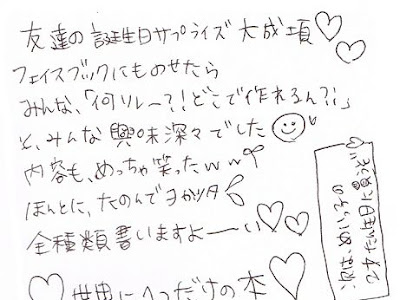 友達の誕生日サプライズ大成項♡♡
フェイスブックにものせたら
みんな、「何ソレー?!どこで作れるん?!」
と、みんな興味深々でした
内容も、めっちゃ笑ったww
ほんとに、たのんでヨかッタ
全種類書いますよーーい♡♡
♡世界に1つだけの本♡